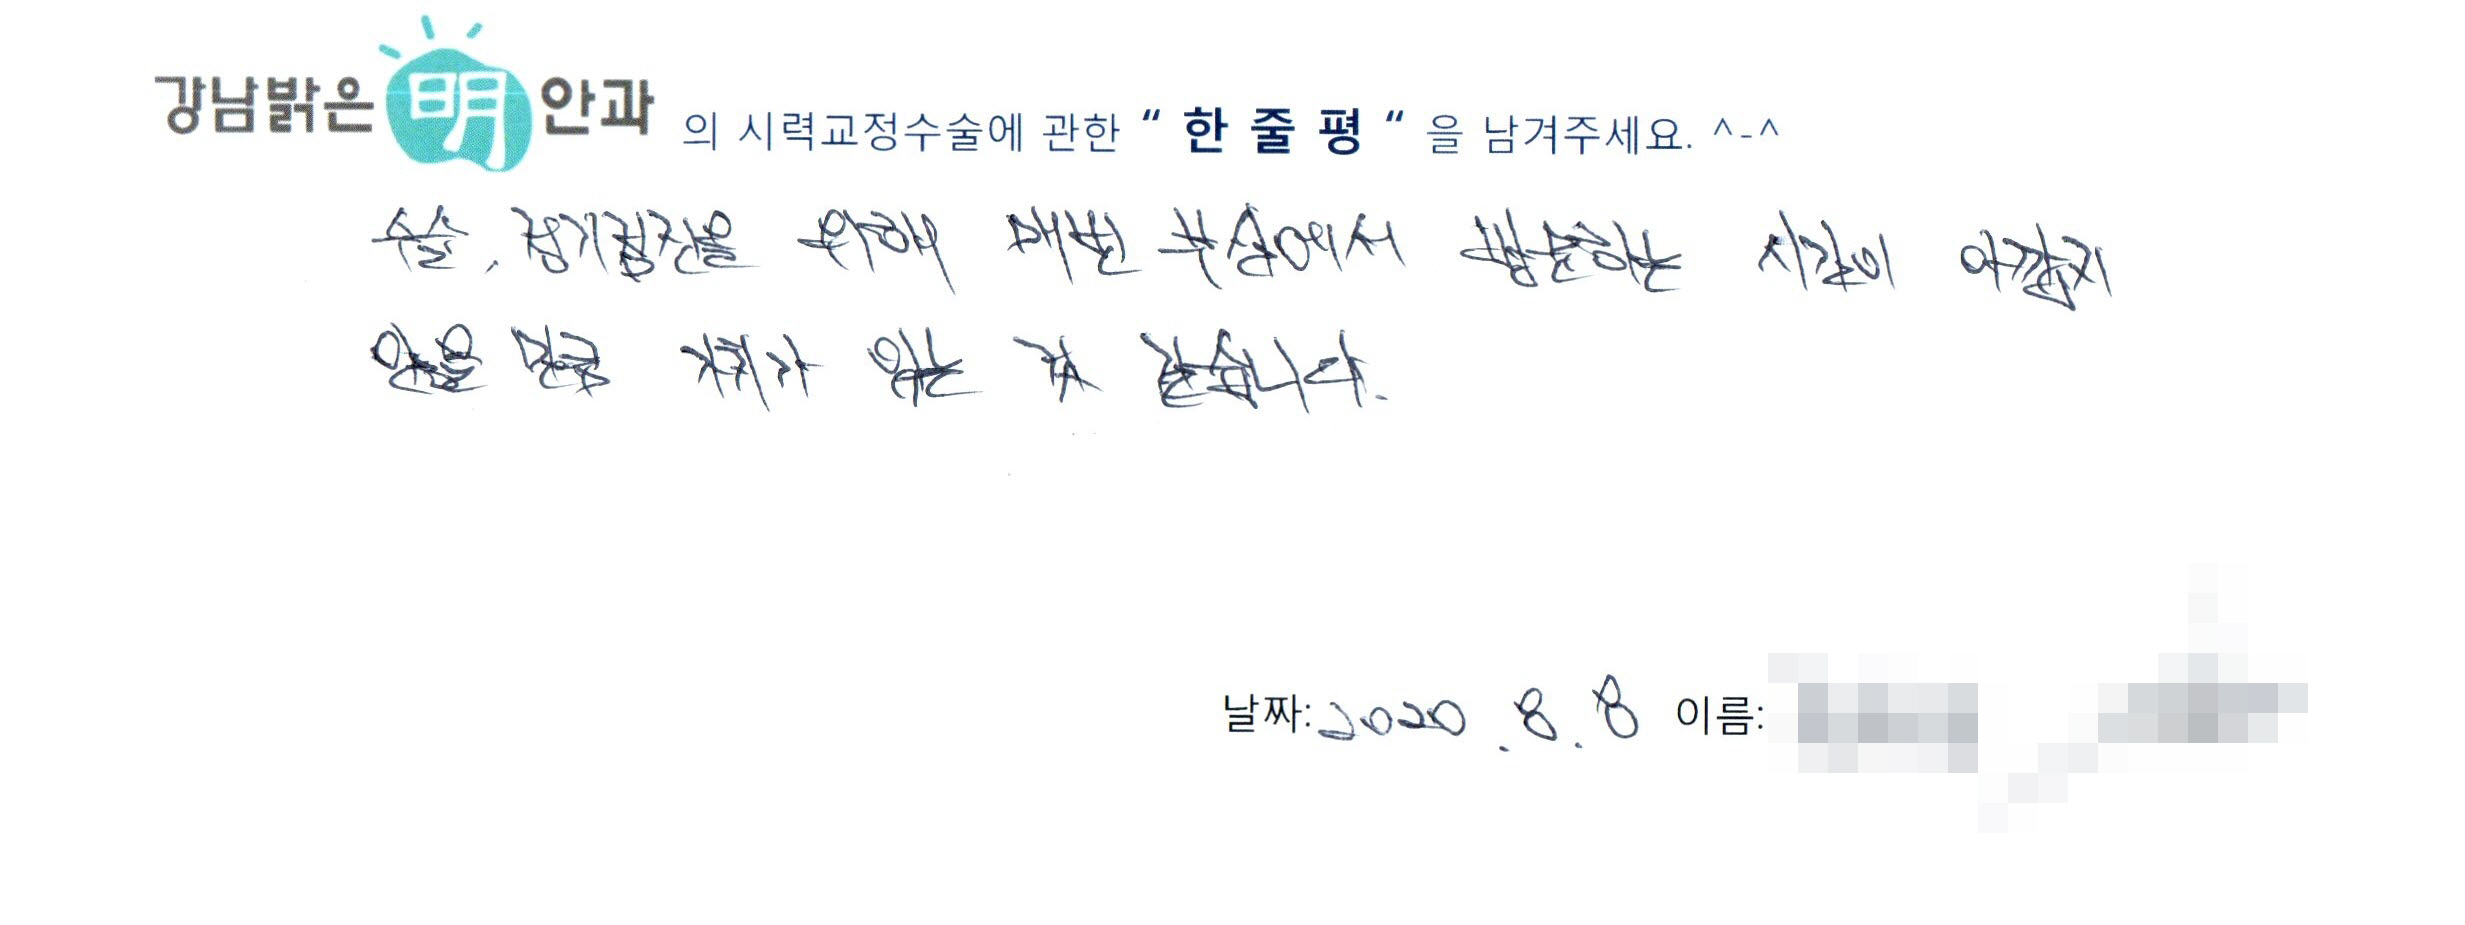 강남밝은明안과 의 시력교정수술에 관한 “ 한 줄 평 “ 을 남겨주세요. ^-^
수술, 정기검진을 위해 매번 부산에서 방문하는 시간이 아깝지
않을 만큼 가치가 있는 것 같습니다.
날짜: 2020. 8. 8 이름: